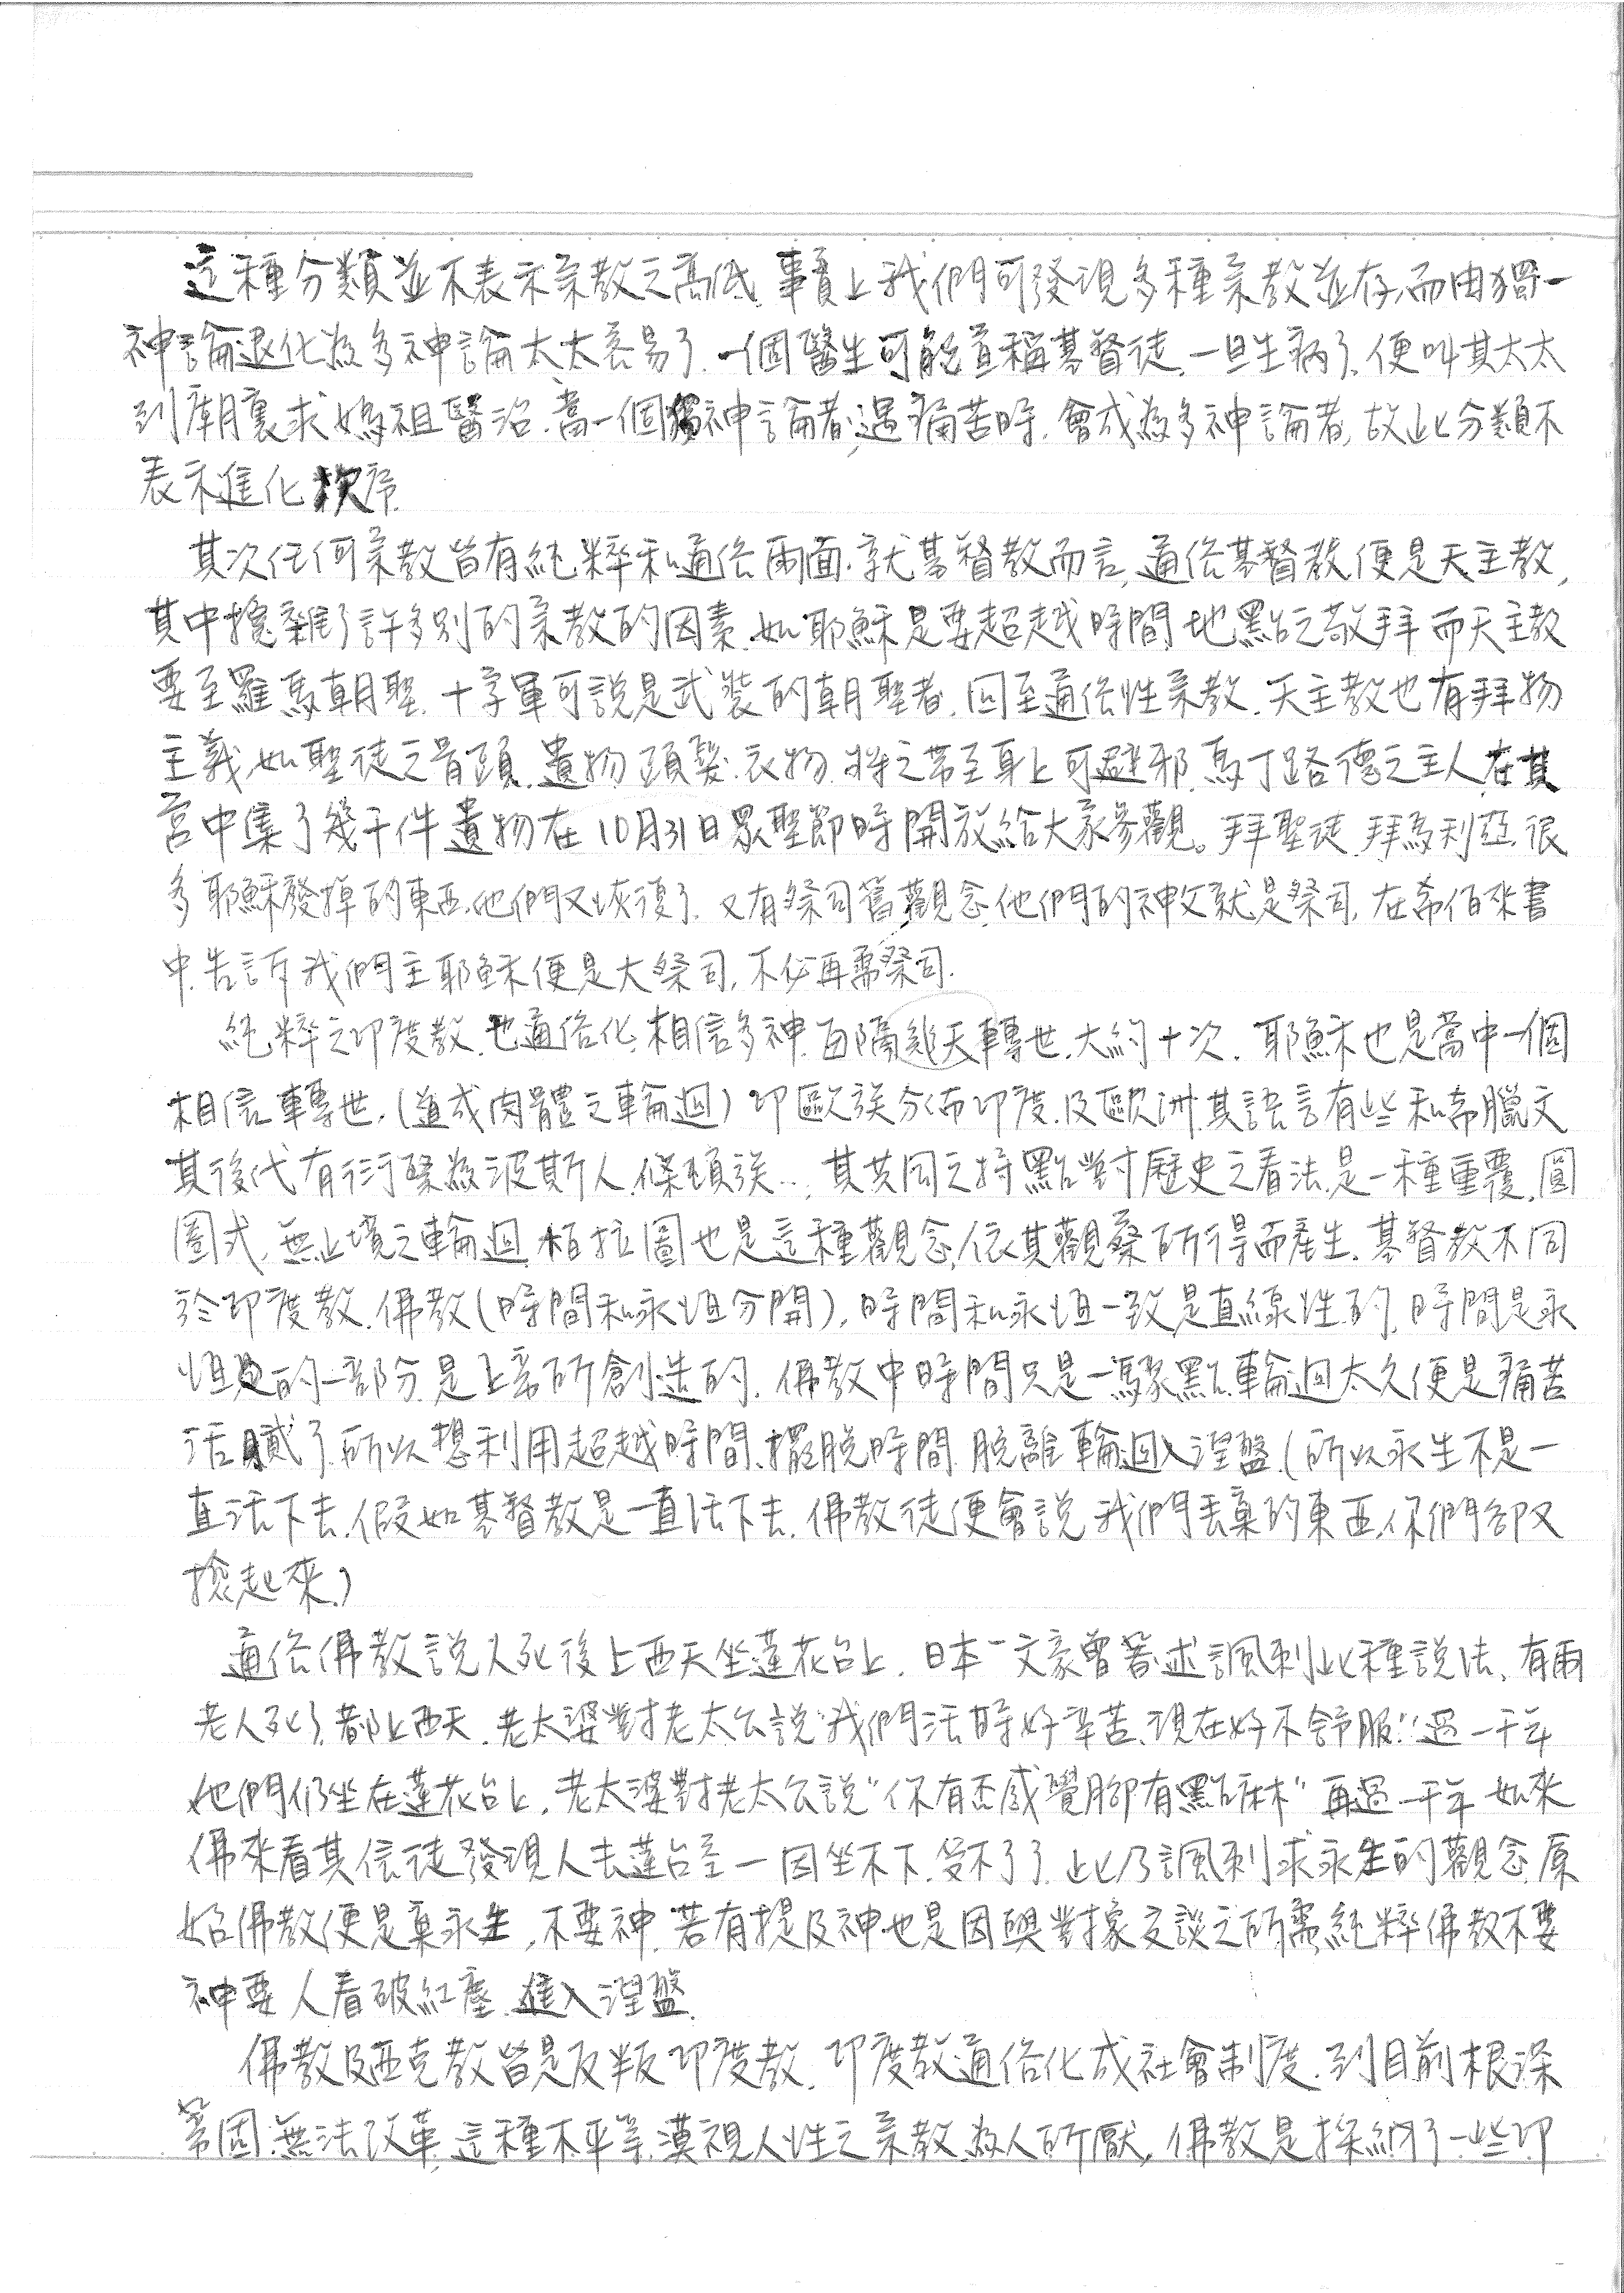 這種分類並不表示宗教之高低.事實上我們可發現多種宗教並存,而由獨一
神論退化為多神論太太容易了.一個醫生可能宣稱基督徒,一旦生病了,便叫其太太
到廟裏求媽祖醫治.當一個獨神論者,遇痛苦時,會成為多神論者,故此分類不
表示進化次序.
其次任何宗教皆有純粹和通俗兩面.就基督教而言,通俗基督教便是天主教,
其中攙雜了許多別的宗教的因素.如耶穌是要超越時間地點之敬拜而天主教
要至羅馬朝聖.十字軍可說是武裝的朝聖者.回至通俗性宗教.天主教也有拜物
主義,如聖徒之骨頭.遺物.頭髮.衣物.將之帶至身上可避邪.馬丁路德之主人在其
宮中集了幾千件遺物在10月31日眾聖節時開放給大家參觀。拜聖徒.拜馬利亞.很
多耶穌廢掉的東西.他們又恢復了.又有祭司舊觀念.他們的神父就是祭司.在希伯來書
中告訴我們主耶穌便是大祭司,不必再需祭司.
純粹之印度教.也通俗化.相信多神.每隔幾天轉世.大約十次.耶穌也是當中一個
相信轉世.(道成肉體之輪迴)印歐族分佈印度.及歐洲.其語言有些和希臘文
其後代有衍繁為波斯人.條頓族…,其共同之特點對歷史之看法是一種重覆.圓
圈式.無止境之輪迴.柏拉圖也是這種觀念,依其觀察所得而產生.基督教不同
於印度教.佛教(時間和永恒分開),時間和永恒一致是直線性的.時間是永
恒的一部分.是上帝所創造的.佛教中時間只是一點.輪迴太久便是痛苦
活膩了.所以想利用超越時間.擺脫時間.脫離輪迴入涅盤.(所以永生不是一
直活下去.假如基督教是一直活下去.佛教徒便會說我們丟棄的東西.你們卻又
撿起來.)
通俗佛教說人死後上西天坐蓮花台上.日本一文豪曾著述諷刺此種說法.有兩
老人死了.都上西天.老太婆對老太公說"我們活時好辛苦.現在好不舒服!"過一千年
他們仍坐在蓮花台上.老太婆對老太公說"你有否感覺腳有點麻"再過一千年如來
佛來看其信徒發現人去蓮台空—因坐不下.受不了了.此乃諷刺求永生的觀念.原
始佛教便是棄永生,不要神.若有提及神也是因與對象交談之所需.純粹佛教不要
神要人看破紅塵.進入涅盤.
佛教及西克教皆是反叛印度教.印度教通俗化成社會制度.到目前根深
蒂固.無法改革.這種不平等.漠視人性之宗教.為人所厭.佛教是採納了一些印